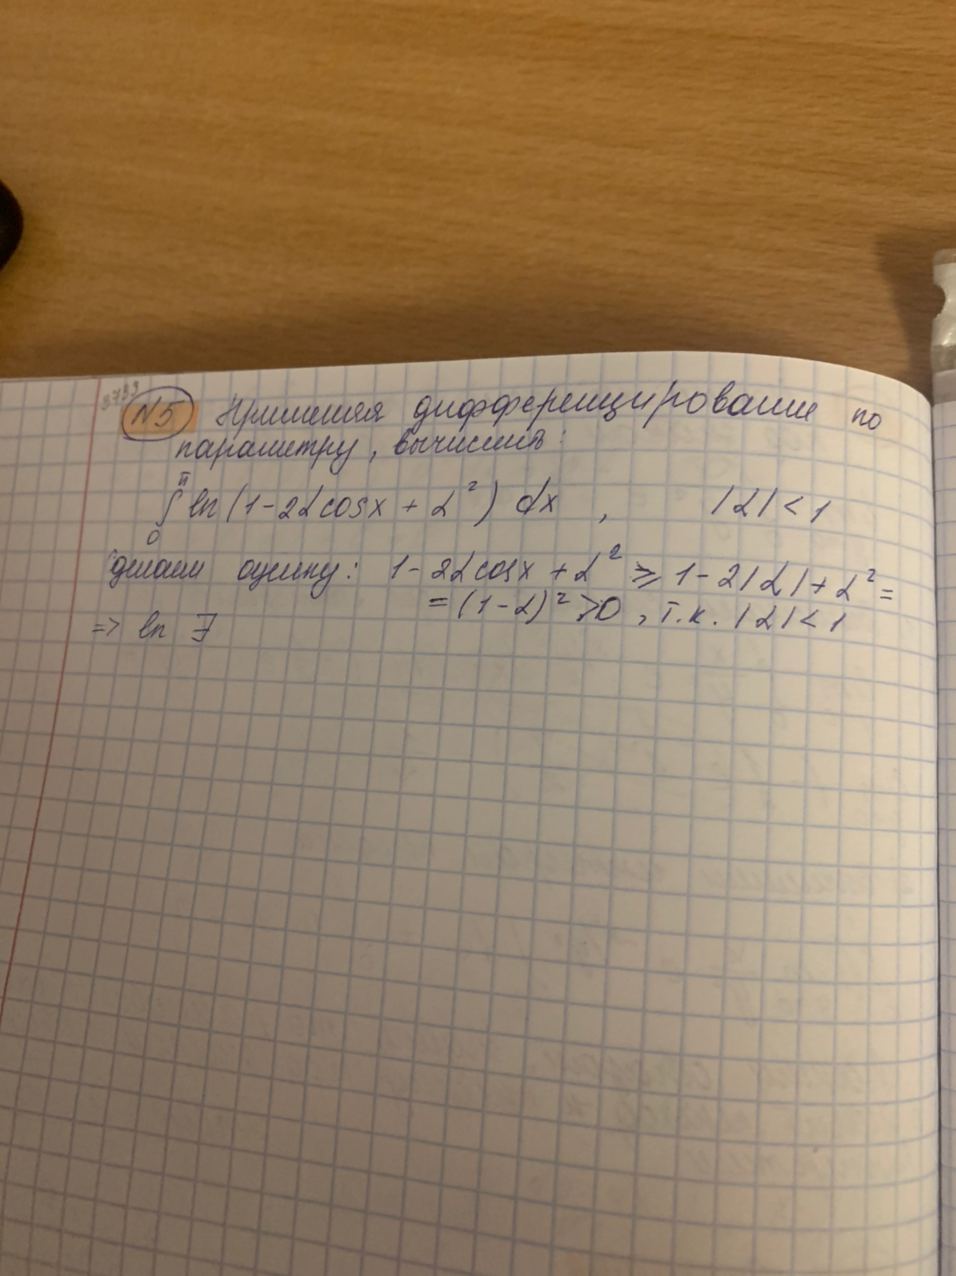 3733
N5 Применяя дифференцирование по
параметру, вычислить:
∫₀^π ln(1-2αcosx + α²) dx , |α| < 1
Делаем оценку: 1-2αcosx + α² ⩾ 1-2|α|+α² =
= (1-α)² > 0 , т.к. |α| < 1
=> ln ∃